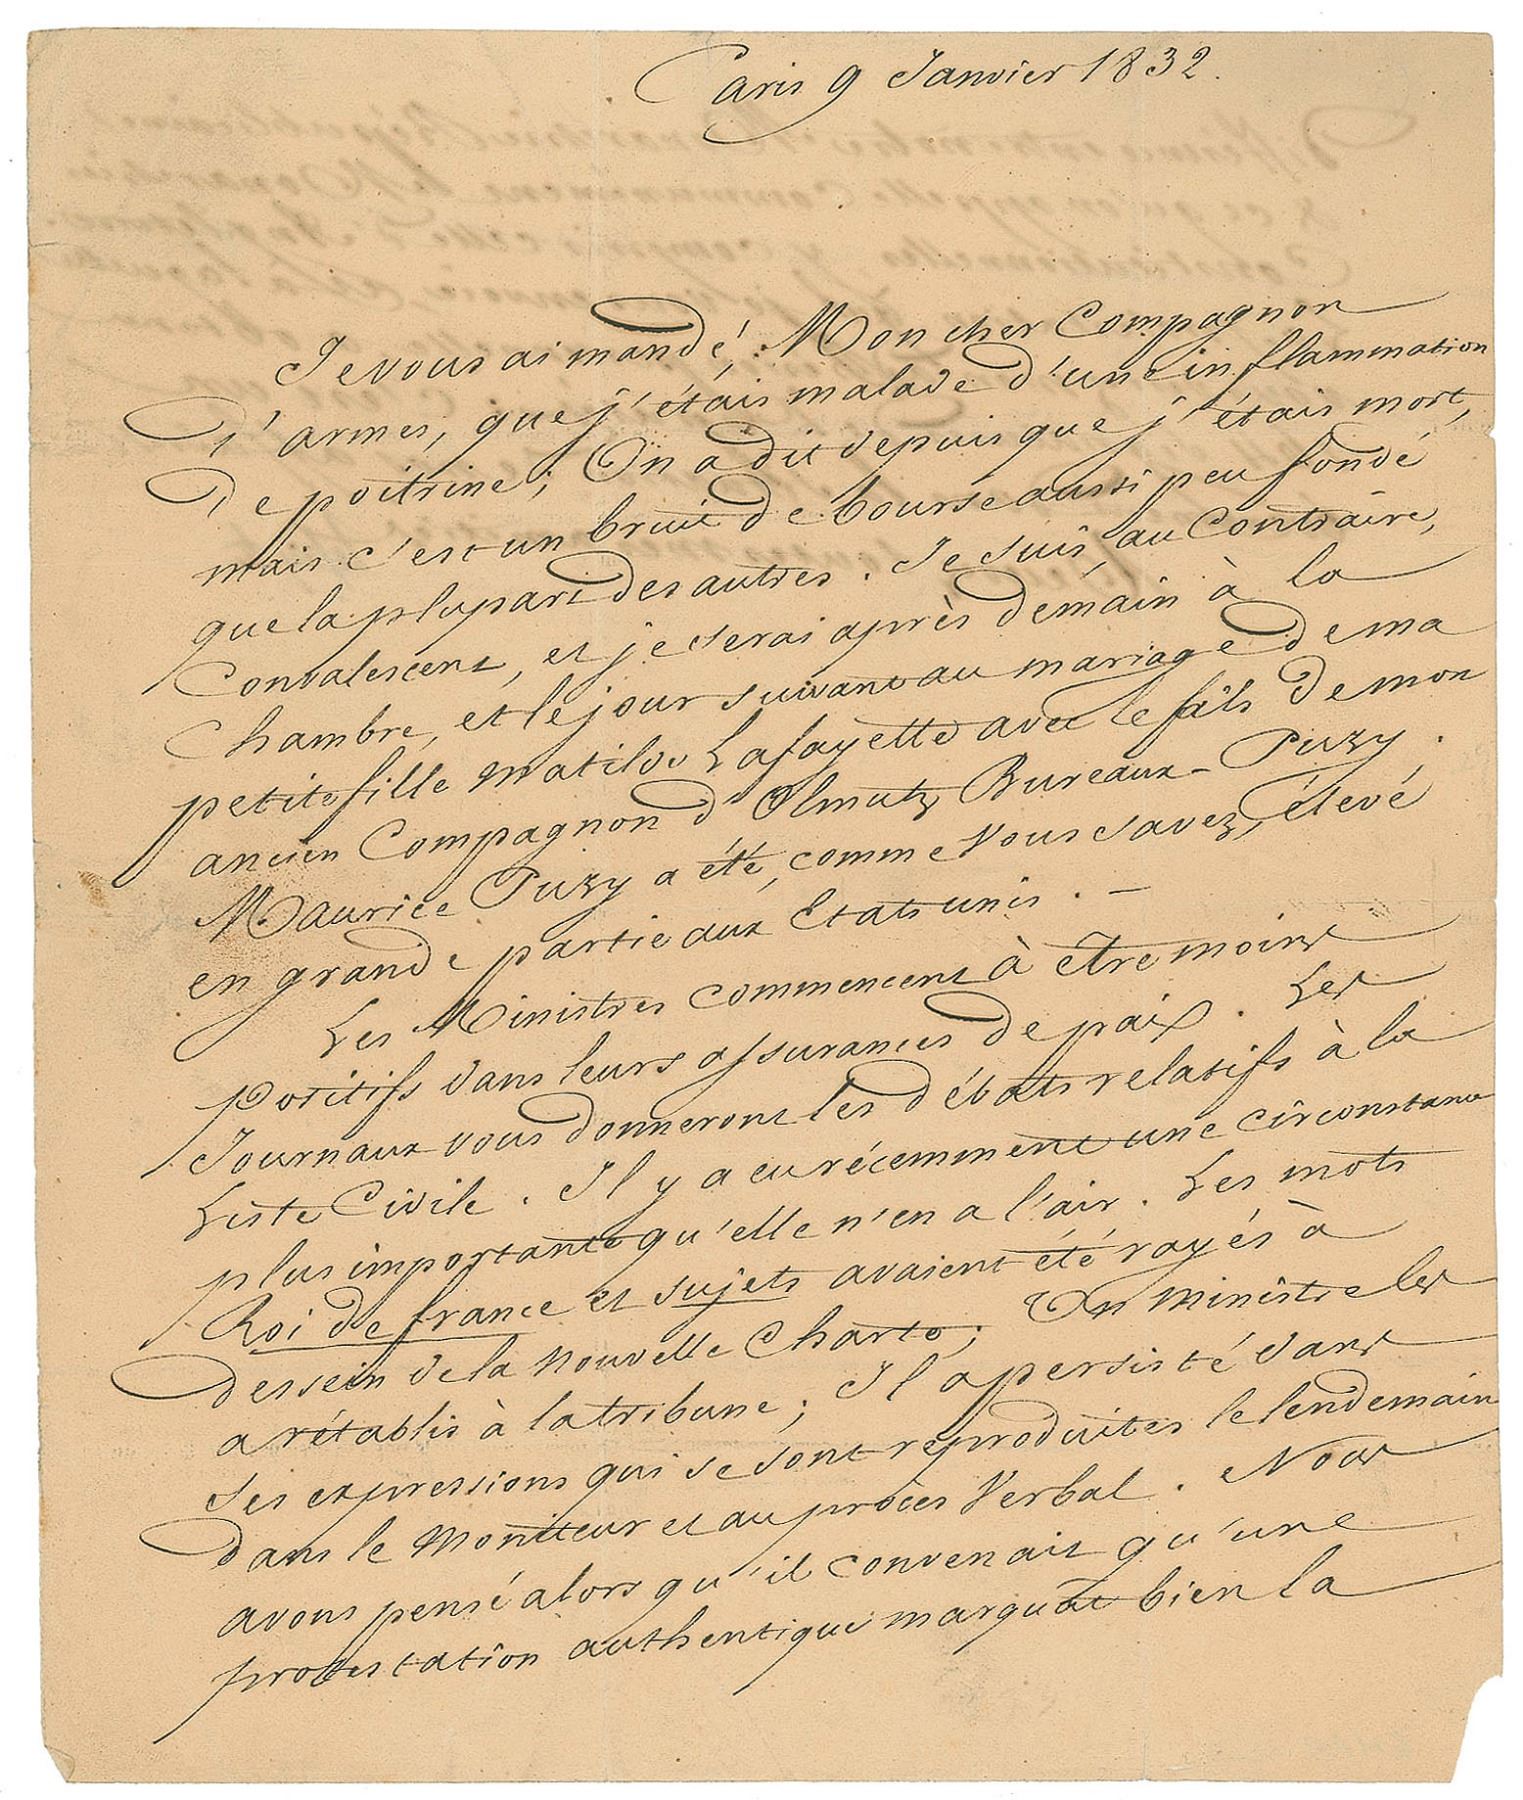 Paris 9 Janvier 1832.
Je vous ai mandé, Mon cher Compagnon
d'armes, que j'étais malade d'une inflammation
de poitrine; On a dit depuis que j'étais mort,
mais c'est un bruit de bourse aussi peu fondé
que la plupart des autres. Je suis, au Contraire,
Convalescent, et je serai après demain à la
Chambre, et le jour suivant au mariage de ma
petite fille Matilde Lafayette avec le fils de mon
ancien Compagnon d'Olmutz Bureaux-Puzy.
Maurice Puzy a été, comme Vous savez, élevé
en grande partie aux Etats unis. —
Les Ministres commencent à être moins
positifs dans leurs assurances de paix. Les
Journaux vous donneront les débats relatifs à la
Liste Civile. Il y a eu récemment une circonstance
plus importante qu'elle n'en a l'air. Les mots
Roi de france et sujets avaient été rayés à
dessein de la Nouvelle Charte; Un Ministre les
a rétablis à la tribune; Il a persisté dans
ses expressions qui se sont reproduites le lendemain
dans le Moniteur et au procès Verbal. Nous
avons pensé alors qu'il convenait qu'une
protestation authentique marquât bien la